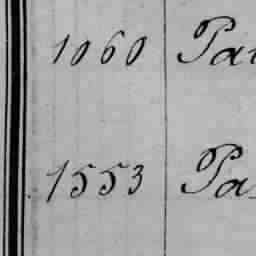 1060 Pa
1553 Pa